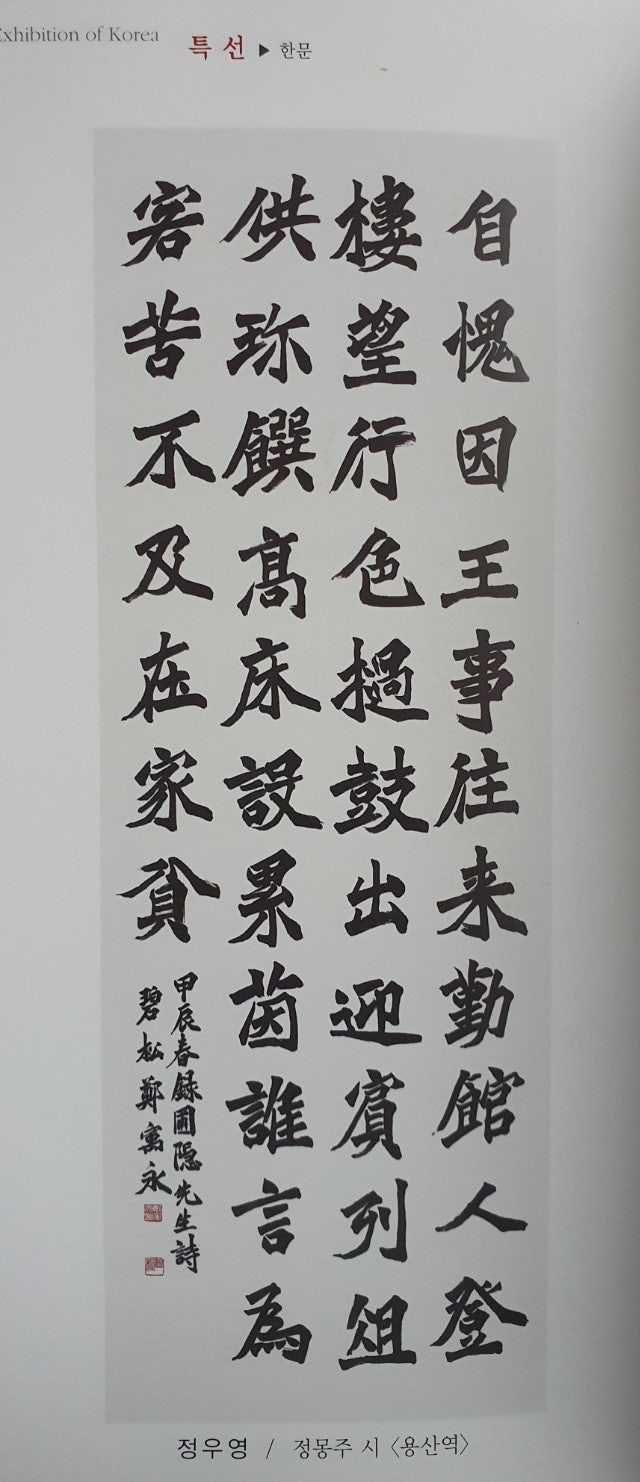 Exhibition of Korea
특선 ▶ 한문
自愧因王事往来勤館人登
樓望行色撾鼓出迎賓列俎
供珎饌髙床設累茵誰言為
客苦不及在家貧
甲辰春録圃隠先生詩
碧松鄭寓永
정우영 / 정몽주 시 〈용산역〉